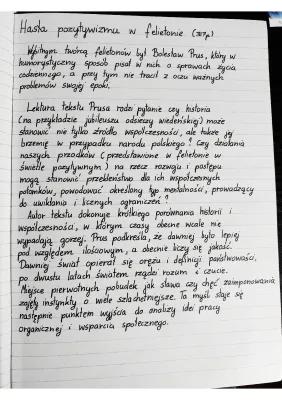 Hasła pozytywizmu w felietonie
Wybitnym twórcą felietonów był Bolesław Prus, który w
humorystyczny sposób pisał w nich o sprawach życia
codziennego, a przy tym nie tracił z oczu ważnych
problemów swojej epoki.
Lektura tekstu Prusa rodzi pytanie czy historia
(na przykładzie jubileuszu odsieczy wiedeńskiej) może
stanowić nie tylko źródło współczesności, ale także jej
brzemię w przypadku narodu polskiego? Czy działania
naszych przodków (przedstawione w felietonie w
świetle pozytywnym) na rzecz rozwoju i postępu
mogą stanowić przekleństwo dla ich współczesnych
potomków, powodować określony typ mentalności, prowadzący
do uwikłania i licznych ograniczeń?
Autor tekstu dokonuje krótkiego porównania historii i
współczesności, w którym czasy obecne wcale nie
wypadają gorzej. Prus podkreśla, że dawniej było lepiej
pod względem ilościowym, a obecnie liczy się jakość.
Dawniej świat opierał się orężu i definicji państwowości,
po dwustu latach światem rządzi rozum i czucie.
Miejsce pierwotnych pobudek jak sława czy chęć zaimponowania
zajęły instynkty o wiele szlachetniejsze. Ta myśl staje się
następnie punktem wyjścia do analizy idei pracy
organicznej i wsparcia społecznego.